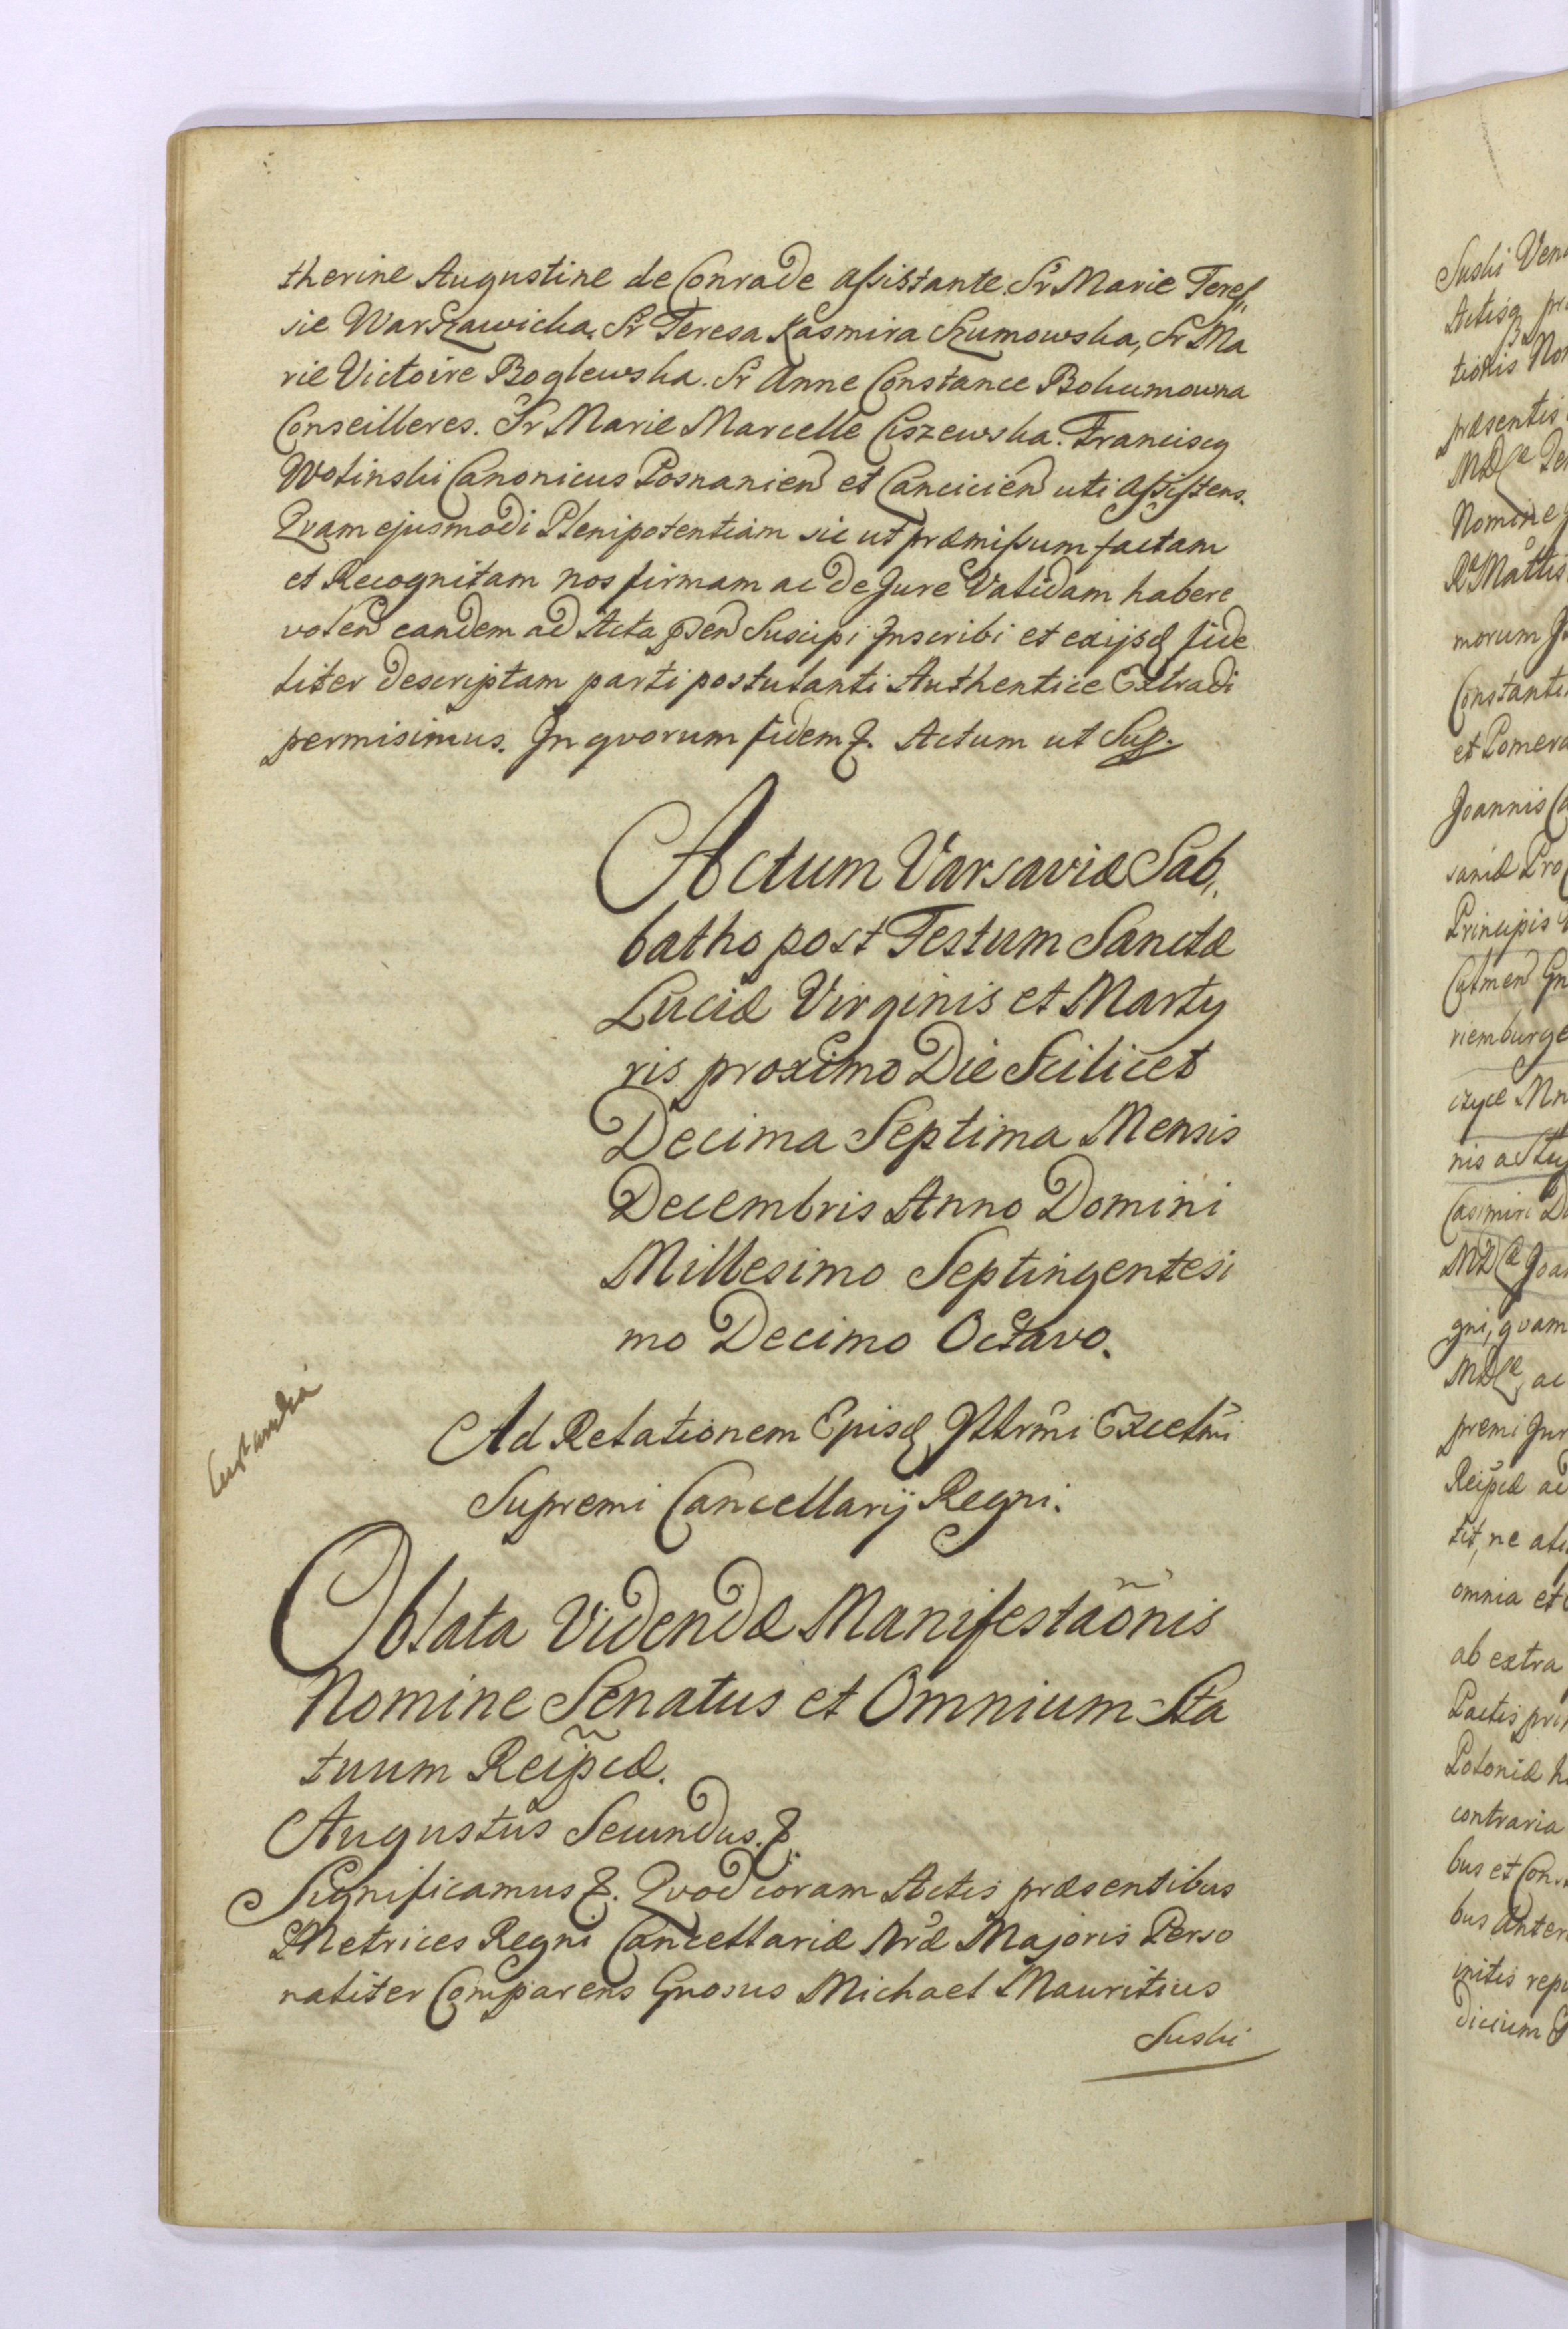 therine Augustine de Conrade assistante. Sr Marie Teres,,
sie Warszawicka. Sr Teresa Kasmira Szumowska, Sr Ma
rie Victoire Boglewska. Sr Anne Constance Bokumowna
Conseilleres. Sr Marie Marcelle Ciszewska. Franciscq
Wolinski Canonicus Posnanien et Lancicien uti assistens.
Qvam ejusmodi Plenipotentiam sic ut præmissum factam
et Recognitam nos firmam ac de Jure Validam habere
volen eandem ad Acta pn̄ Suscipi Inscribi et exijsq fide
liter descriptam parti postulanti Authentice Extradi
permisimus. In qvorum fidem &. Actum ut Sup.
Actum Varsaviæ Sab,,
batho post Festum Sanctæ
Luciæ Virginis et Marty
ris proximo Die Scilicet
Decima Septima Mensis
Decembris Anno Domini
Millesimo Septingentesi
mo Decimo Octavo.
Curlandia
Ad Relationem Ejusq Illrmi Excellmi
Supremi Cancellarij Regni.
Oblata Videndæ Manifestaõnis
Nomine Senatus et Omnium Sta
tuum Reipcæ.
Augustus Secundus. &.
Significamus &. Qvod coram Actis præsentibus
Metrices Regni Cancellariæ Nræ Majoris Perso
naliter Comparens Gnosus Michael Mauritius
Suski
Suski
Actisq
tionis
præsentis
Nomine
morum
et Pomera
Joannis
Principis
riemburge
Casimiri
gni, qvam
premi Jur
Reipcæ ac
tit, ne
omnia et
ab extra
Pactis
Poloniæ
contraria
bus et
bus
initis
dicium